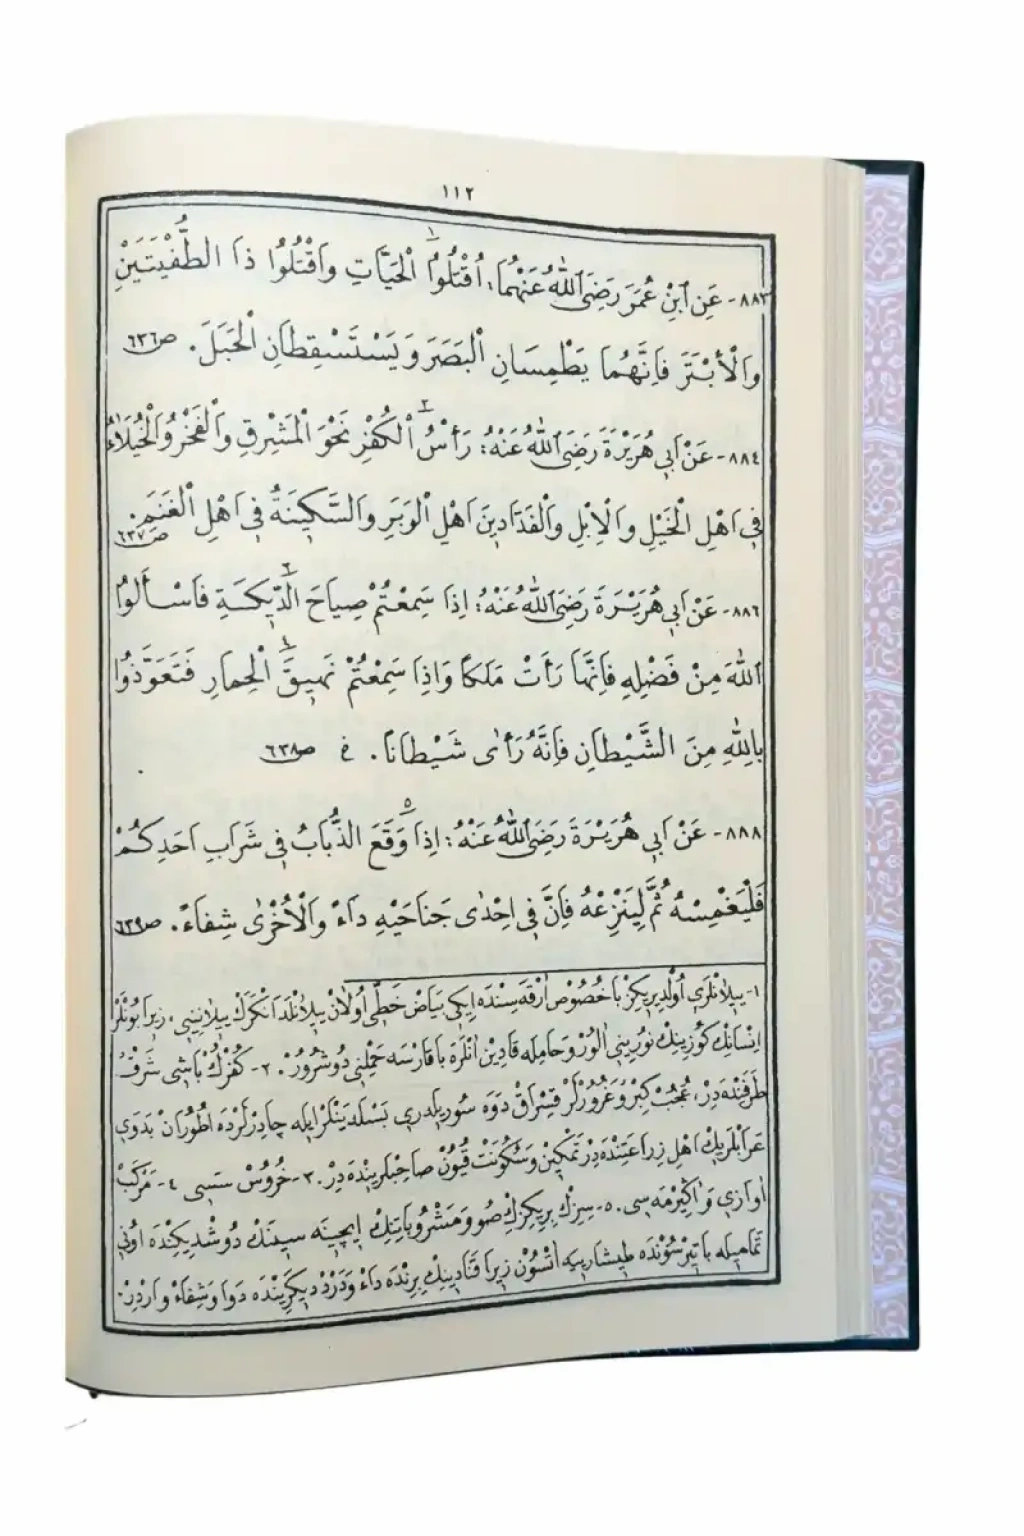 ١١٢
٨٨٣- عَنِ ابْنِ عُمَرَ رَضِيَ اللّٰهُ عَنْهُمَا: اُقْتُلُوا الْحَيَّاتِ وَاقْتُلُوا ذَا الطُّفْيَتَيْنِ
وَالْأَبْتَرَ فَاِنَّهُمَا يَطْمِسَانِ الْبَصَرَ وَيَسْتَسْقِطَانِ الْحَبَلَ. ص٦٣٦
٨٨٤- عَنْ اَبِي هُرَيْرَةَ رَضِيَ اللّٰهُ عَنْهُ: رَأْسُ الْكُفْرِ نَحْوَ الْمَشْرِقِ وَالْفَخْرُ وَالْخُيَلَاءُ
فِي اَهْلِ الْخَيْلِ وَالْاِبِلِ وَالْفَدَّادِينَ اَهْلِ الْوَبَرِ وَالسَّكِينَةُ فِي اَهْلِ الْغَنَمِ. ص٦٣٧
٨٨٦- عَنْ اَبِي هُرَيْرَةَ رَضِيَ اللّٰهُ عَنْهُ: اِذَا سَمِعْتُمْ صِيَاحَ الدِّيَكَةِ فَاسْأَلُوا
اللّٰهَ مِنْ فَضْلِهِ فَاِنَّهَا رَأَتْ مَلَكًا وَاِذَا سَمِعْتُمْ نَهِيقَ الْحِمَارِ فَتَعَوَّذُوا
بِاللّٰهِ مِنَ الشَّيْطَانِ فَاِنَّهُ رَأٰى شَيْطَانًا. ص٦٣٨
٨٨٨- عَنْ اَبِي هُرَيْرَةَ رَضِيَ اللّٰهُ عَنْهُ: اِذَا وَقَعَ الذُّبَابُ فِي شَرَابِ اَحَدِكُمْ
فَلْيَغْمِسْهُ ثُمَّ لِيَنْزِعْهُ فَاِنَّ فِي اِحْدٰى جَنَاحَيْهِ دَاءً وَالْاُخْرٰى شِفَاءً. ص٦٣٩
١- ييلانلرى اولديريكز باخصوص ارقه سنده ايكى بياض خطى اولان ييلانلدا انكرك ييلانينى. زيرا بونلر
انسانك كوزينك نورينى الور وحامله قادين انلره باقارسه حملنى دوشرور. ٢- كفرك باشى شرق
طرفنده در، عجب كبر وغرورلر قسراق دوه سوريلرى بسله ينلر ايله چادرلرده اطوران بدوى
عرابلريك اهل زراعتنده در تمكين وسكونت قيون صاحبلرينده در. ٣- خروس سسى ٤- مركب
اوازى واكيرمه سى. ٥- سزك بريكزك صو ومشروباتنك ايچينه سينك دوشديكنده اونى
تماميله باتيرسونده طيشاريه اتسون زيرا قنادينك برنده داء ودرد ديكرينده دوا وشفاء واردر.